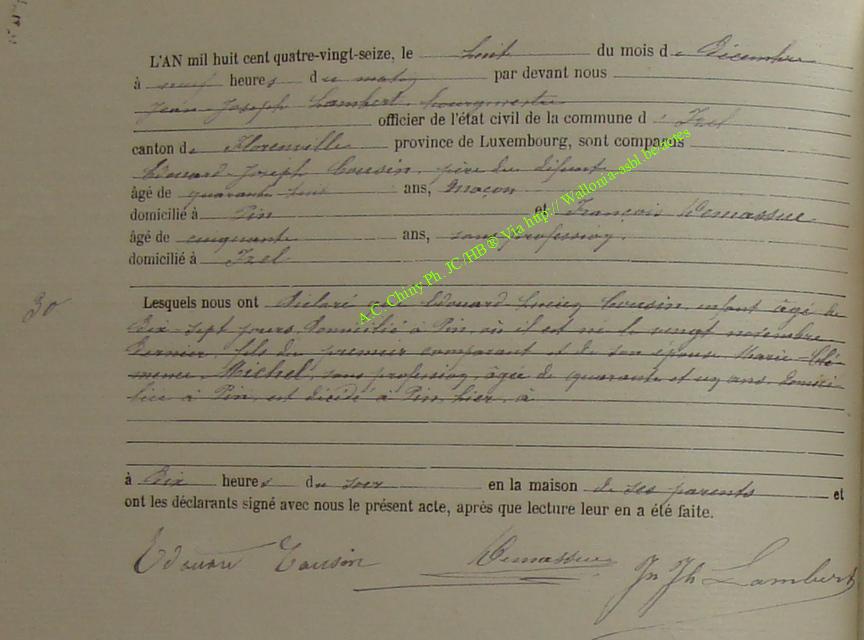 L'AN mil huit cent quatre-vingt-seize, le huit du mois de Décembre
à neuf heures du matin par devant nous
Jean-Joseph Lambert, bourgmestre
officier de l'état civil de la commune d'Izel
canton de Florenville province de Luxembourg, sont comparus
Edouard-Joseph Cousin, père du défunt
âgé de quarante-huit ans, Maçon
domicilié à Pin et François Hemassue
âgé de cinquante ans, sans profession,
domicilié à Izel
30
Lesquels nous ont Déclaré que Edouard Cousin, enfant âgé de
Dix-sept jours, Domicilié à Pin, où il est né le vingt novembre
Dernier, fils du premier comparant et de son épouse Marie-Clé-
mence Michel, sans profession, âgée de quarante et un ans, Domici-
liée à Pin, est décédé à Pin, hier, a
à Dix heures du soir en la maison de ses parents et
ont les déclarants signé avec nous le présent acte, après que lecture leur en a été faite.
Edouard Cousin Hemassue Jn Jh Lambert
A.C. Chiny Ph. JC/HB ® Via http:// Wallonia-asbl.be/actes